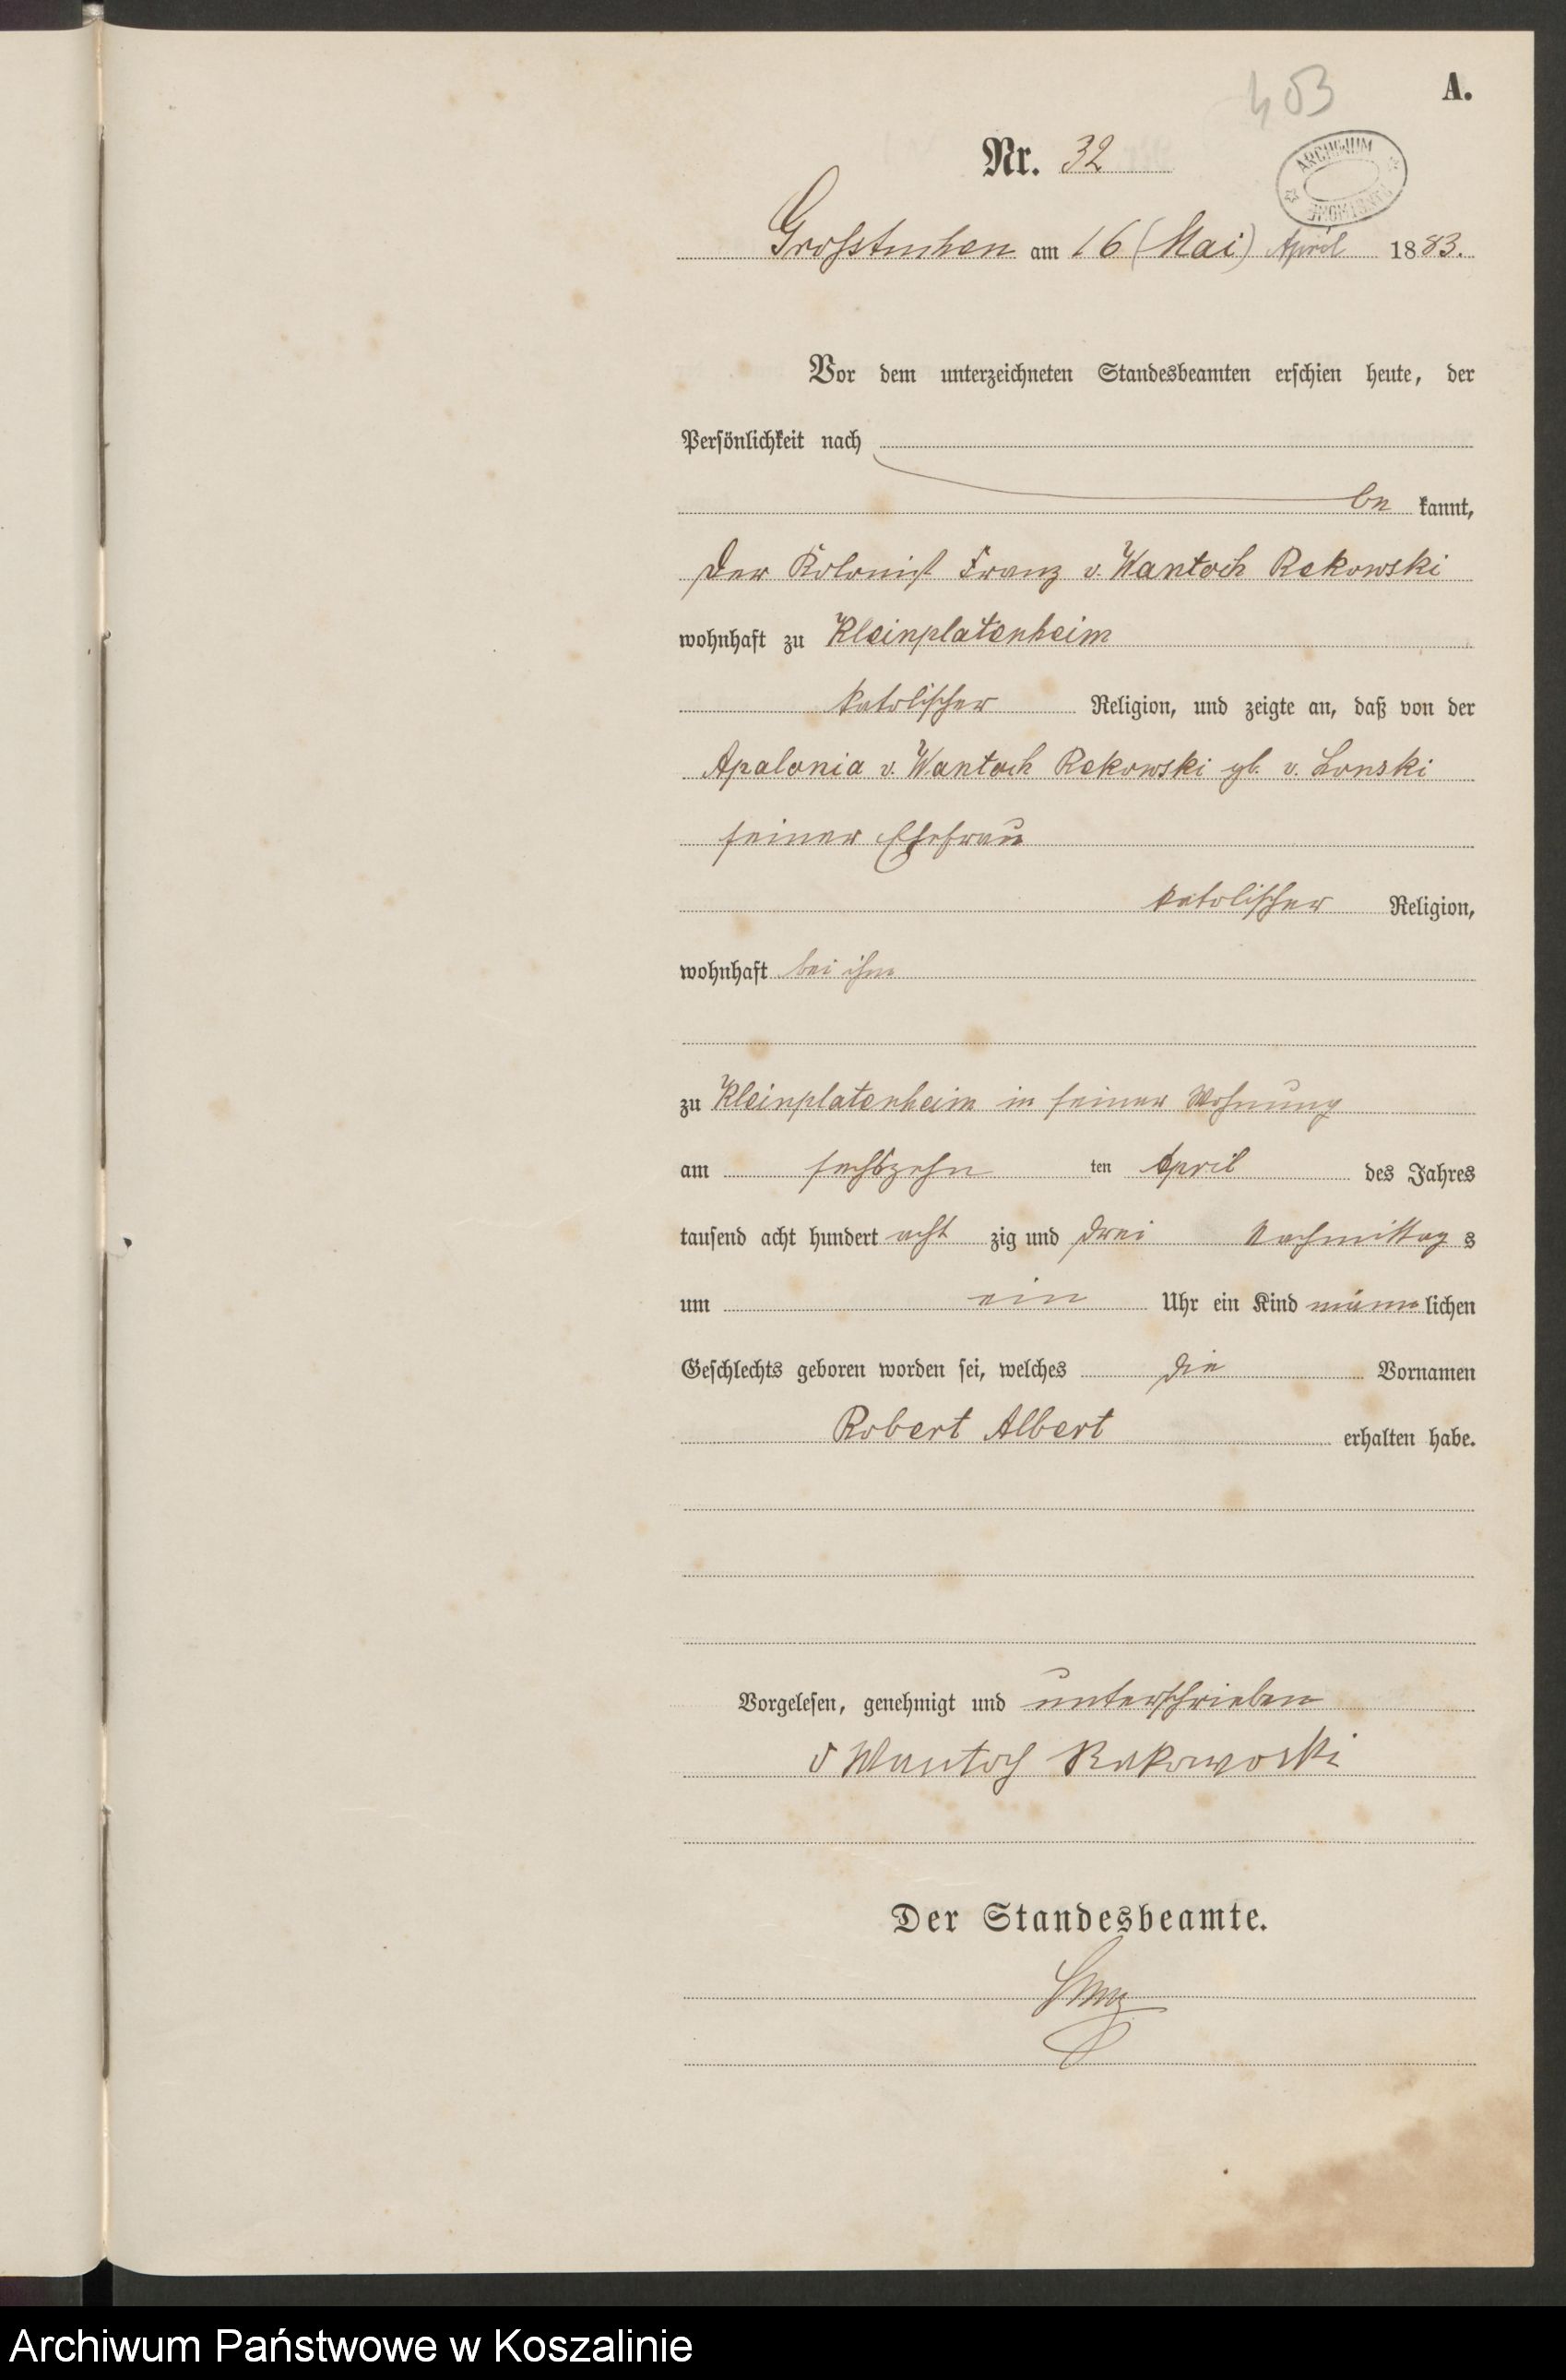 403
A.
Nr. 32
ARCHIWUM PAŃSTWOWE
Grosstuchen am 16 (Mai) April 1883.
Vor dem unterzeichneten Standesbeamten erschien heute, der
Persönlichkeit nach
be kannt,
der Kolonist Franz v. Wantoch Rekowski
wohnhaft zu Kleinplatenheim
katolischer Religion, und zeigte an, daß von der
Apalonia v. Wantoch Rekowski gb. v. Lonski
seiner Ehefrau
katolischer Religion,
wohnhaft bei ihm
zu Kleinplatenheim in seiner Wohnung
am sechszehn ten April des Jahres
tausend acht hundert acht zig und drei Nachmittag s
um ein Uhr ein Kind männ lichen
Geschlechts geboren worden sei, welches die Vornamen
Robert Albert erhalten habe.
Vorgelesen, genehmigt und unterschrieben
v Wantoch Rekowski
Der Standesbeamte.
Archiwum Państwowe w Koszalinie